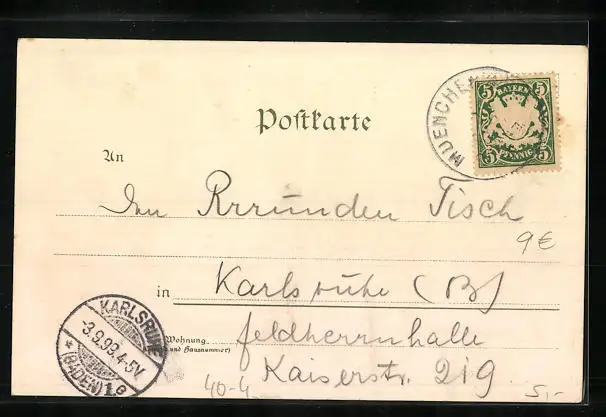 MUENCHEN
5 BAYERN 5
5 PFENNIG 5
Postkarte
An
Den Rrrunden Tisch
9€
in Karlsruhe (B)
KARLSRUHE
-3.9.99.4-5V
* (BADEN) 1.e
Wohnung
(und Hausnummer)
Feldherrnhalle
Kaiserstr. 219
40-4
5,-